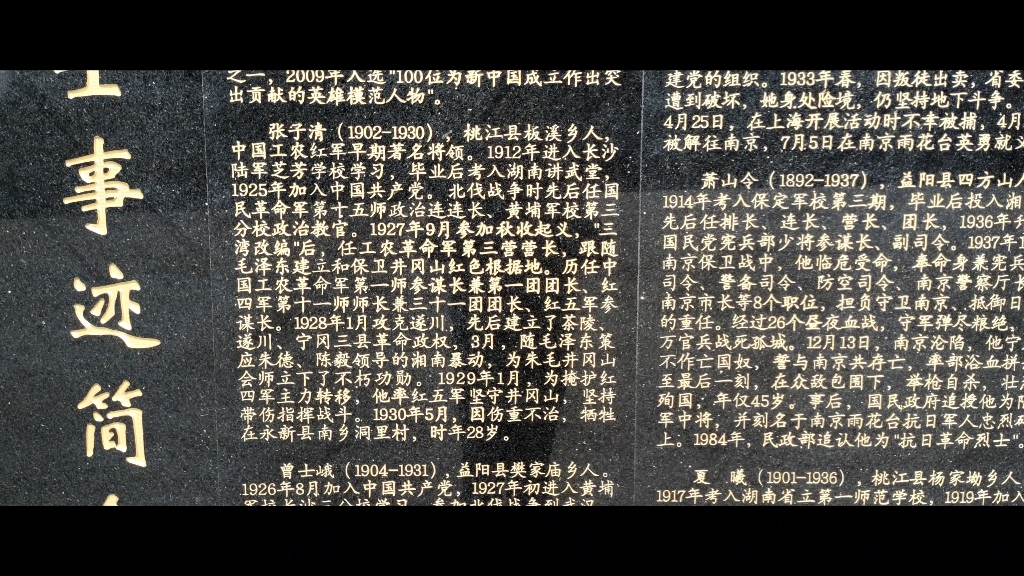 事
迹
简
之一，2009年入选"100位为新中国成立作出突
出贡献的英雄模范人物"。
张子清（1902-1930），桃江县板溪乡人，
中国工农红军早期著名将领。1912年进入长沙
陆军芝芳学校学习，毕业后考入湖南讲武堂，
1925年加入中国共产党。北伐战争时先后任国
民革命军第十五师政治连连长、黄埔军校第三
分校政治教官。1927年9月参加秋收起义，"三
湾改编"后，任工农革命军第三营营长，跟随
毛泽东建立和保卫井冈山红色根据地。历任中
国工农革命军第一师参谋长兼第一团团长、红
四军第十一师师长兼三十一团团长、红五军参
谋长。1928年1月攻克遂川，先后建立了茶陵、
遂川、宁冈三县革命政权，3月，随毛泽东策
应朱德、陈毅领导的湘南暴动，为朱毛井冈山
会师立下了不朽功勋。1929年1月，为掩护红
四军主力转移，他率红五军坚守井冈山，坚持
带伤指挥战斗。1930年5月，因伤重不治，牺牲
在永新县南乡洞里村，时年28岁。
曾士峨（1904-1931），益阳县樊家庙乡人。
1926年8月加入中国共产党，1927年初进入黄埔
建党的组织。1933年春，因叛徒出卖，省委
遭到破坏，她身处险境，仍坚持地下斗争。
4月25日，在上海开展活动时不幸被捕，4月
被解往南京，7月5日在南京雨花台英勇就义
萧山令（1892-1937），益阳县四方山人
1914年考入保定军校第三期，毕业后投入湘
先后任排长、连长、营长、团长，1936年升
国民党宪兵部少将参谋长、副司令。1937年1
南京保卫战中，他临危受命，奉命身兼宪兵
司令、警备司令、防空司令、南京警察厅长
南京市长等8个职位，担负守卫南京、抵御日
的重任。经过26个昼夜血战，守军弹尽粮绝，
万官兵战死孤城。12月13日，南京沦陷，他宁
不作亡国奴，誓与南京共存亡，率部浴血拼
至最后一刻，在众敌包围下，举枪自杀，壮
殉国，年仅45岁。事后，国民政府追授他为陆
军中将，并刻名于南京雨花台抗日军人忠烈碑
上。1984年，民政部追认他为"抗日革命烈士"。
夏　曦（1901-1936），桃江县杨家坳乡人
1917年考入湖南省立第一师范学校，1919年加入